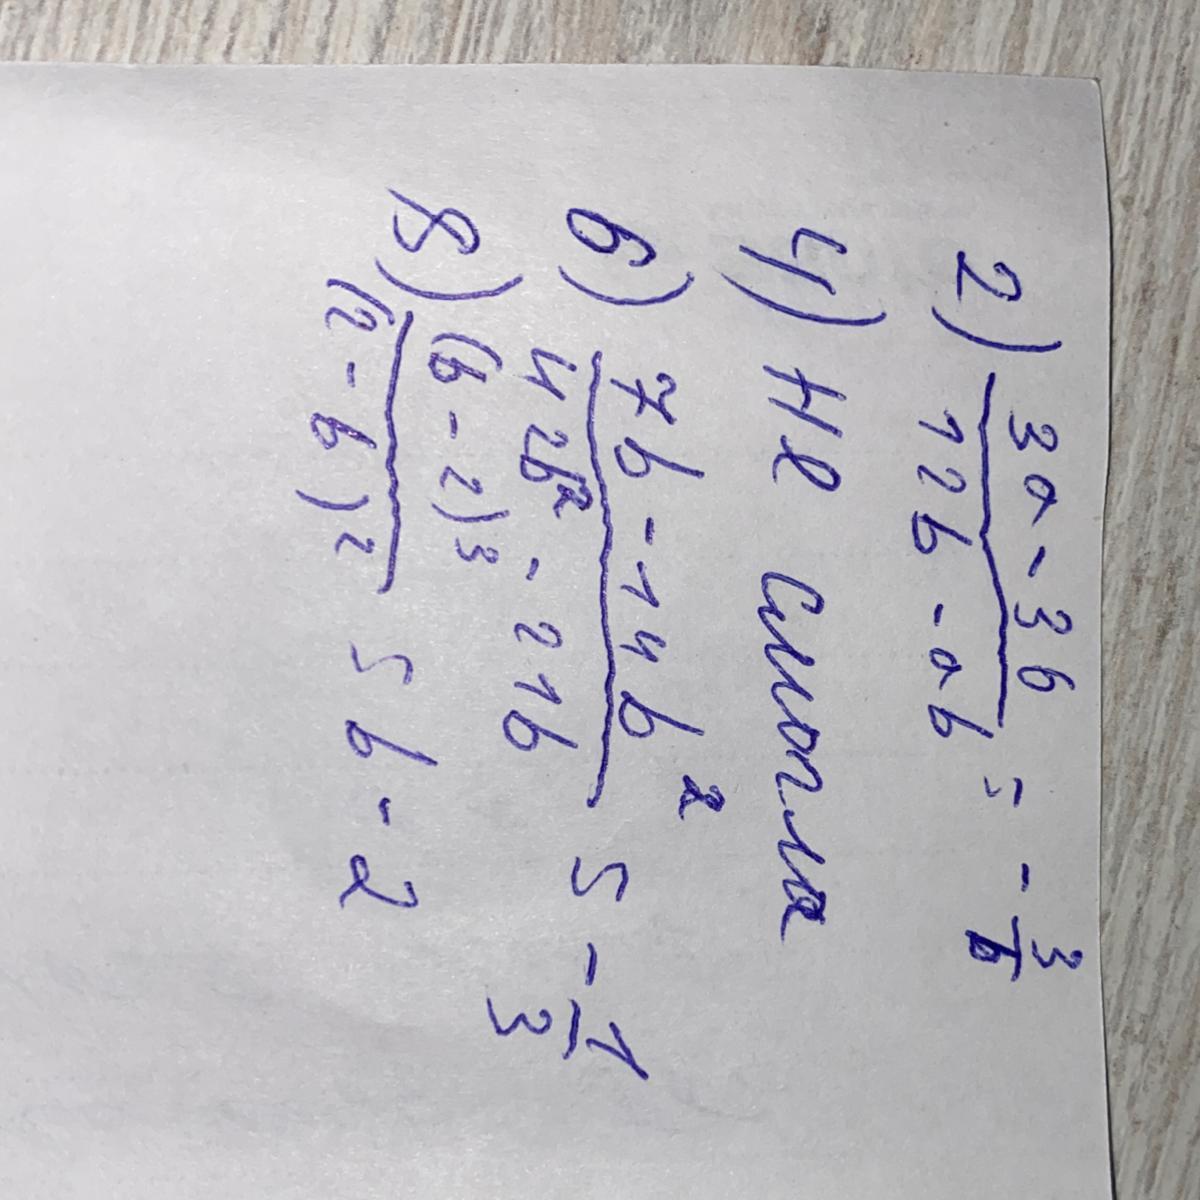 2) 3a - 36 / 12b - ab = - 3/b
4) не смогла
6) 7b - 14b² / 42b² - 21b = - 1/3
8) (b - 2)³ / (2 - b)² = b - 2